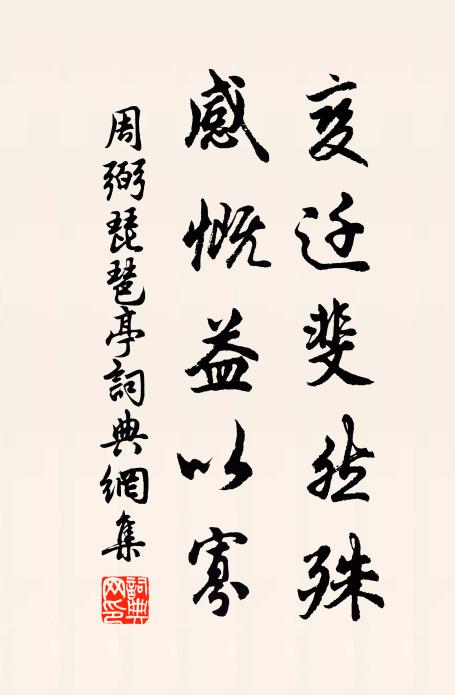 变迁斐然殊
感慨益以寡
周弼琵琶亭詞典網集
詞典网印